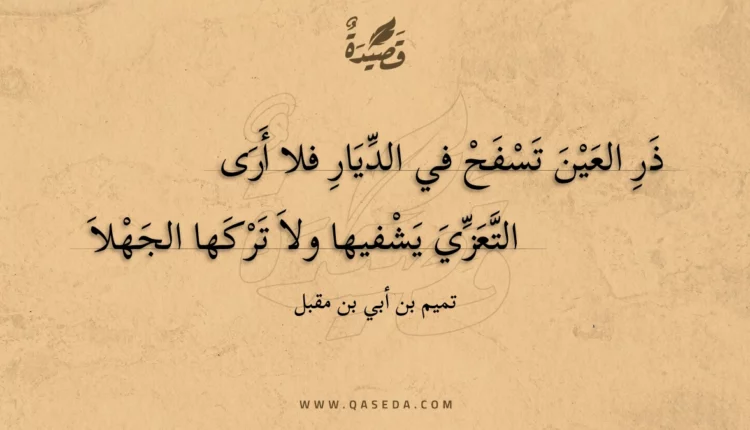 قَصِيْدَةٌ
ذَرِ العَيْنَ تَسْفَحْ في الدِّيَارِ فلا أَرَى
التَّعَزِّيَ يَشْفيها ولاَ تَرْكَها الجَهْلاَ
تميم بن أبي بن مقبل
WWW.QASEDA.COM